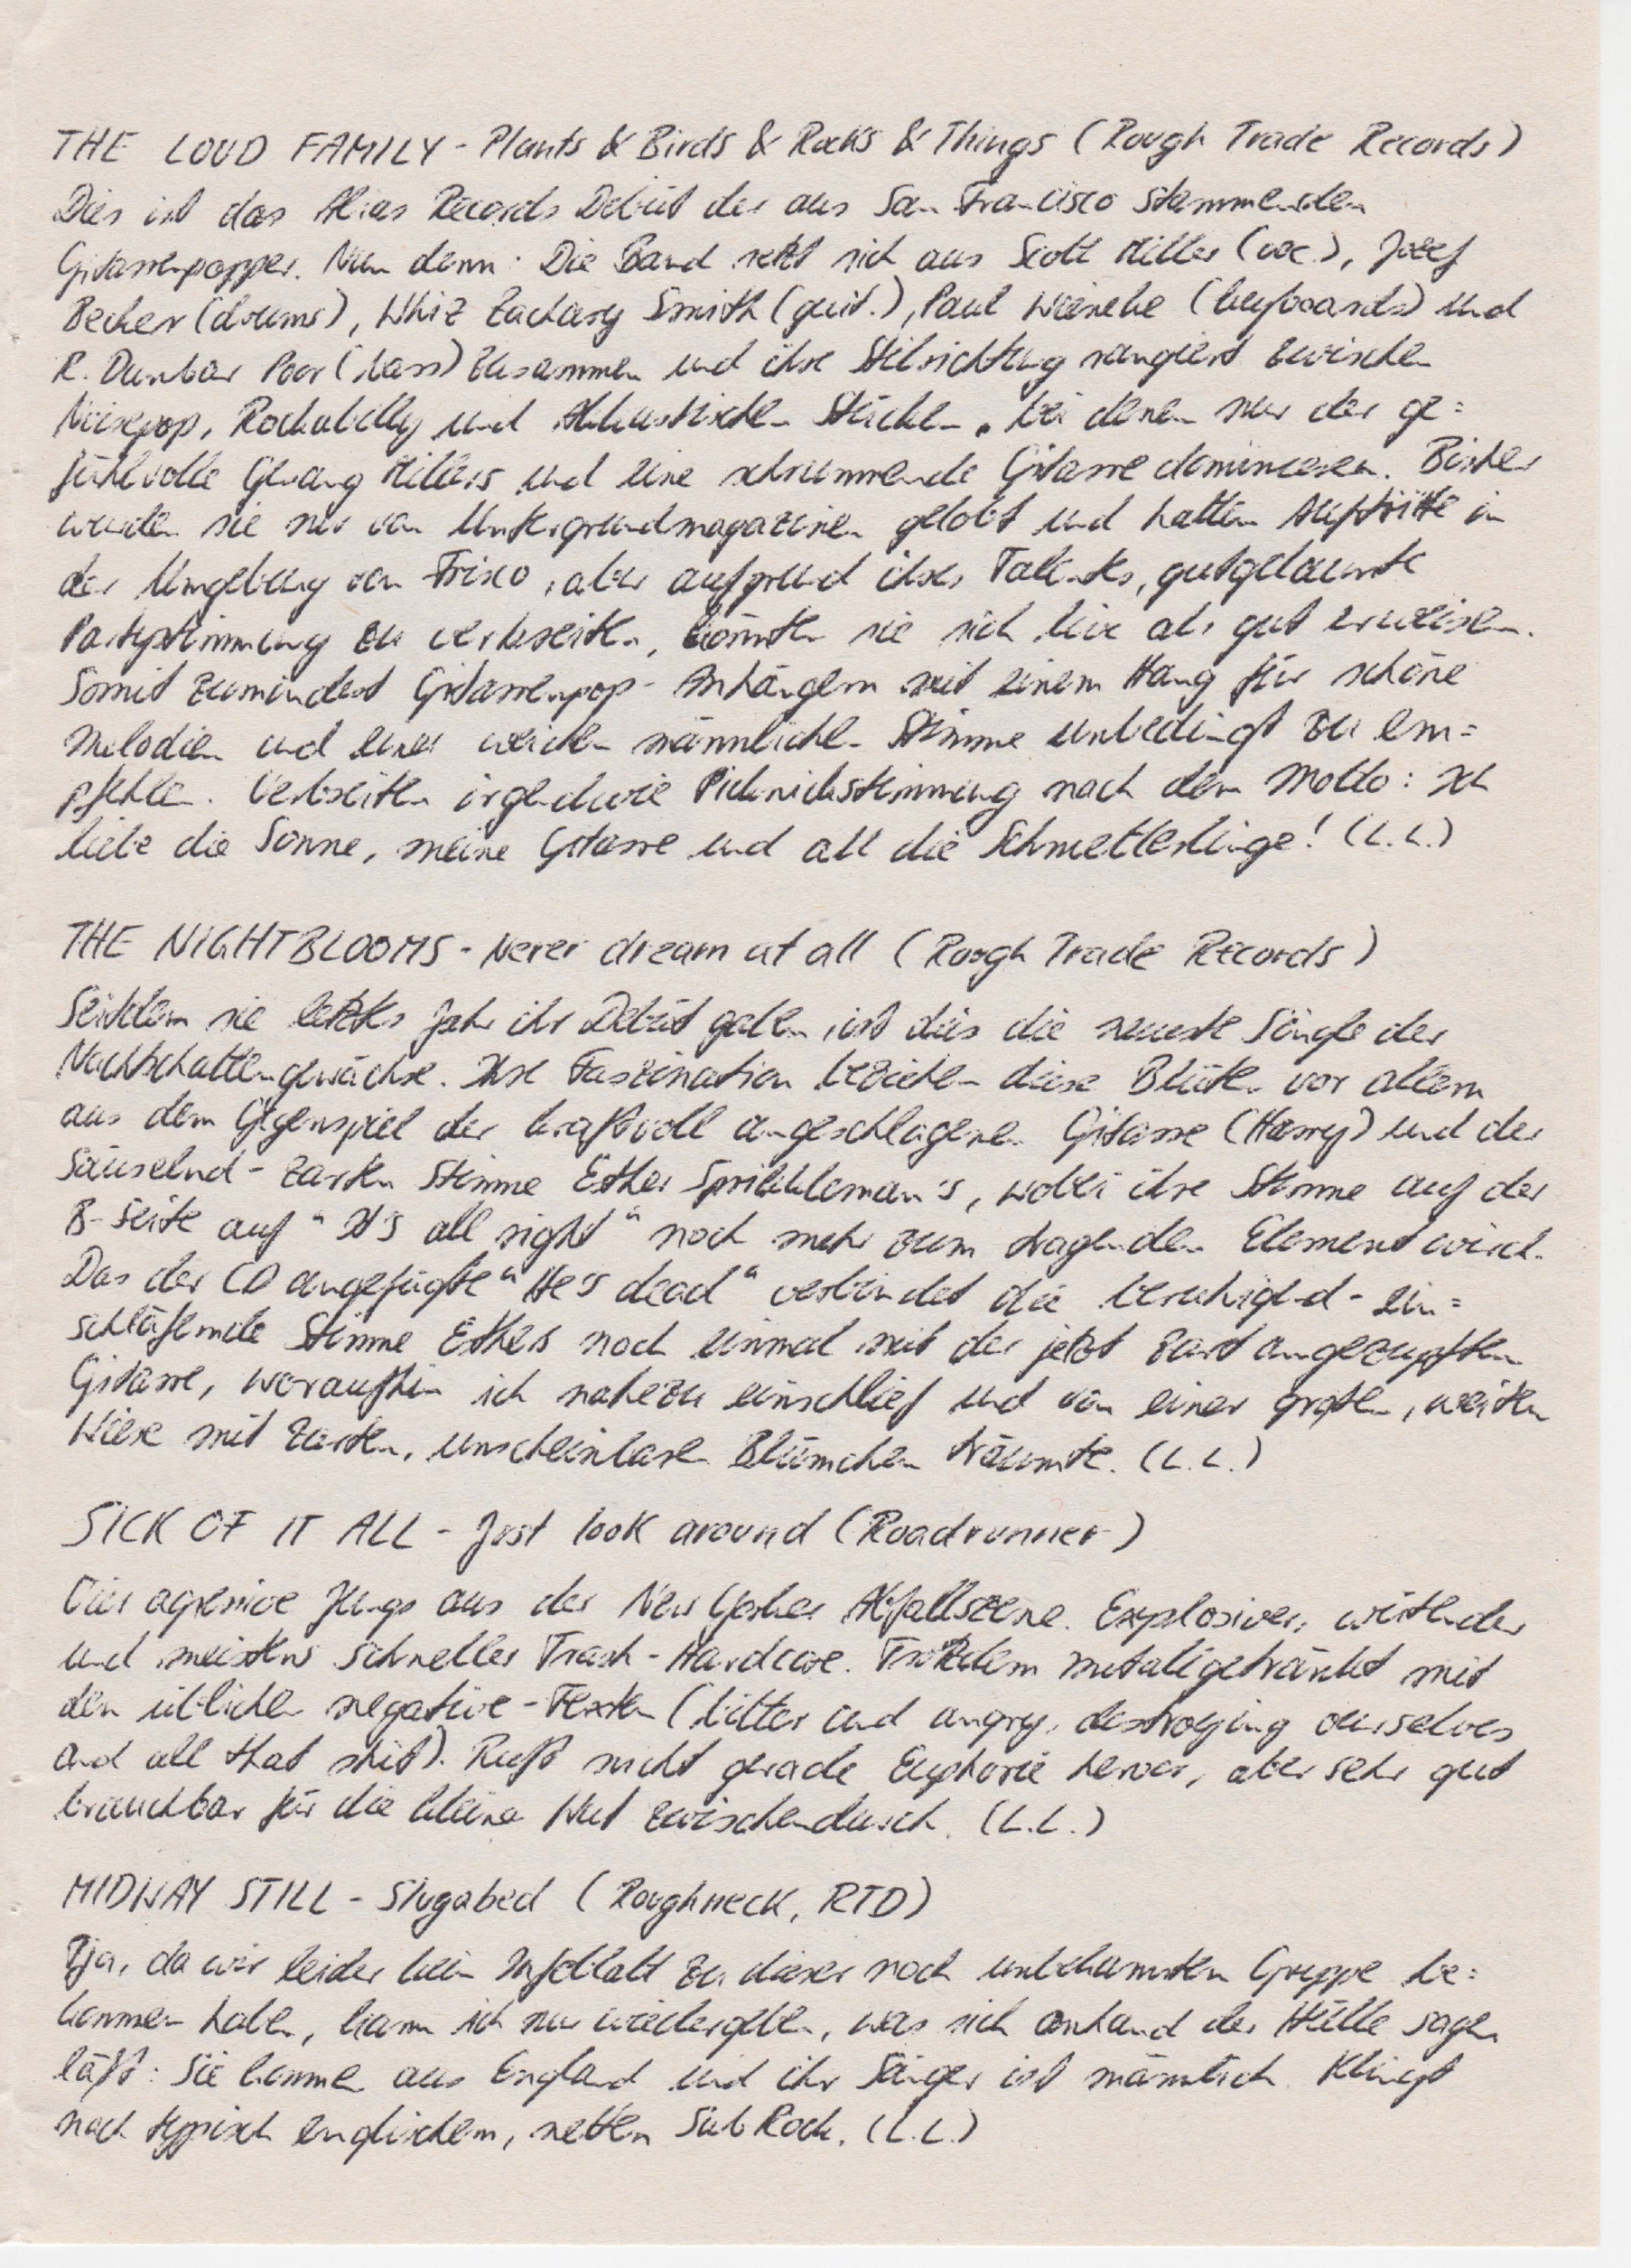 THE LOUD FAMILY - Plants & Birds & Rocks & Things (Rough Trade Records)
Dies ist das Alias Records Debüt der aus San Francisco stammenden
Gitarrenpopper. Nun denn: Die Band setzt sich aus Scott Miller (voc.), Jozef
Becker (drums), Whiz Zachary Smith (guit.), Paul Wieneke (keyboards) und
R. Dunbar Poor (bass) zusammen und ihre Stilrichtung rangiert zwischen
Noisepop, Rockabilly und Akkustischen Stücken, bei denen nur der ge=
fühlvolle Gesang Millers und eine schrummende Gitarre dominieren. Bisher
wurden sie nur von Untergrundmagazinen gelobt und hatten Auftritte in
der Umgebung von Frisco, aber aufgrund ihres Talentes, gutgelaunte
Partystimmung zu verbreiten, könnten sie sich live als gut erweisen.
Somit zumindest Gitarrenpop-Anhängern mit einem Hang für schöne
Melodien und einer weichen männlichen Stimme unbedingt zu em=
pfehlen. Verbreiten irgendwie Picknickstimmung nach dem Motto: Ich
liebe die Sonne, meine Gitarre und all die Schmetterlinge! (L.L.)
THE NIGHTBLOOMS - Never dream at all (Rough Trade Records)
Seitdem sie letztes Jahr ihr Debüt gaben, ist dies die neuste Single der
Nachtschattengewächse. Ihre Faszination beziehen diese Blüten vor allem
aus dem Gegenspiel der kraftvoll angeschlagenen Gitarre (Harry) und der
säuselnd-zarten Stimme Esther Sprikkleman's, wobei ihre Stimme auf der
B-Seite auf "It's all right" noch mehr zum tragenden Element wird.
Das der CD angefügte "He's dead" verbindet die beruhigend-ein=
schläfernde Stimme Esthers noch einmal mit der jetzt zart angezupften
Gitarre, woraufhin ich nahezu einschlief und von einer großen, weiten
Wiese mit zarten, unscheinbaren Blümchen träumte. (L.L.)
SICK OF IT ALL - Just look around (Roadrunner)
Vier agressive Jungs aus der New Yorker Abfallszene. Explosiver, wütender
und meistens schneller Trash-Hardcore. Trotzdem metallgetränkt mit
den üblichen negative-Texten (bitter and angry, destroying ourselves
and all that shit). Ruft nicht gerade Euphorie hervor, aber sehr gut
brauchbar für die kleine Wut zwischendurch. (L.L.)
MIDWAY STILL - Slugabed (Roughneck, RTD)
Tja, da wir leider kein Infoblatt zu dieser noch unbekannten Gruppe be=
kommen haben, kann ich nur wiedergeben, was sich anhand der Hülle sagen
läßt: Sie kommen aus England und ihr Sänger ist männlich. Klingt
nach typisch englischem, netten Sub Rock. (L.L.)